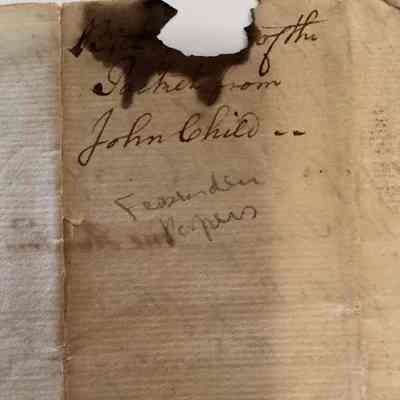 of the
Packet from
John Child --
Fessenden
Papers